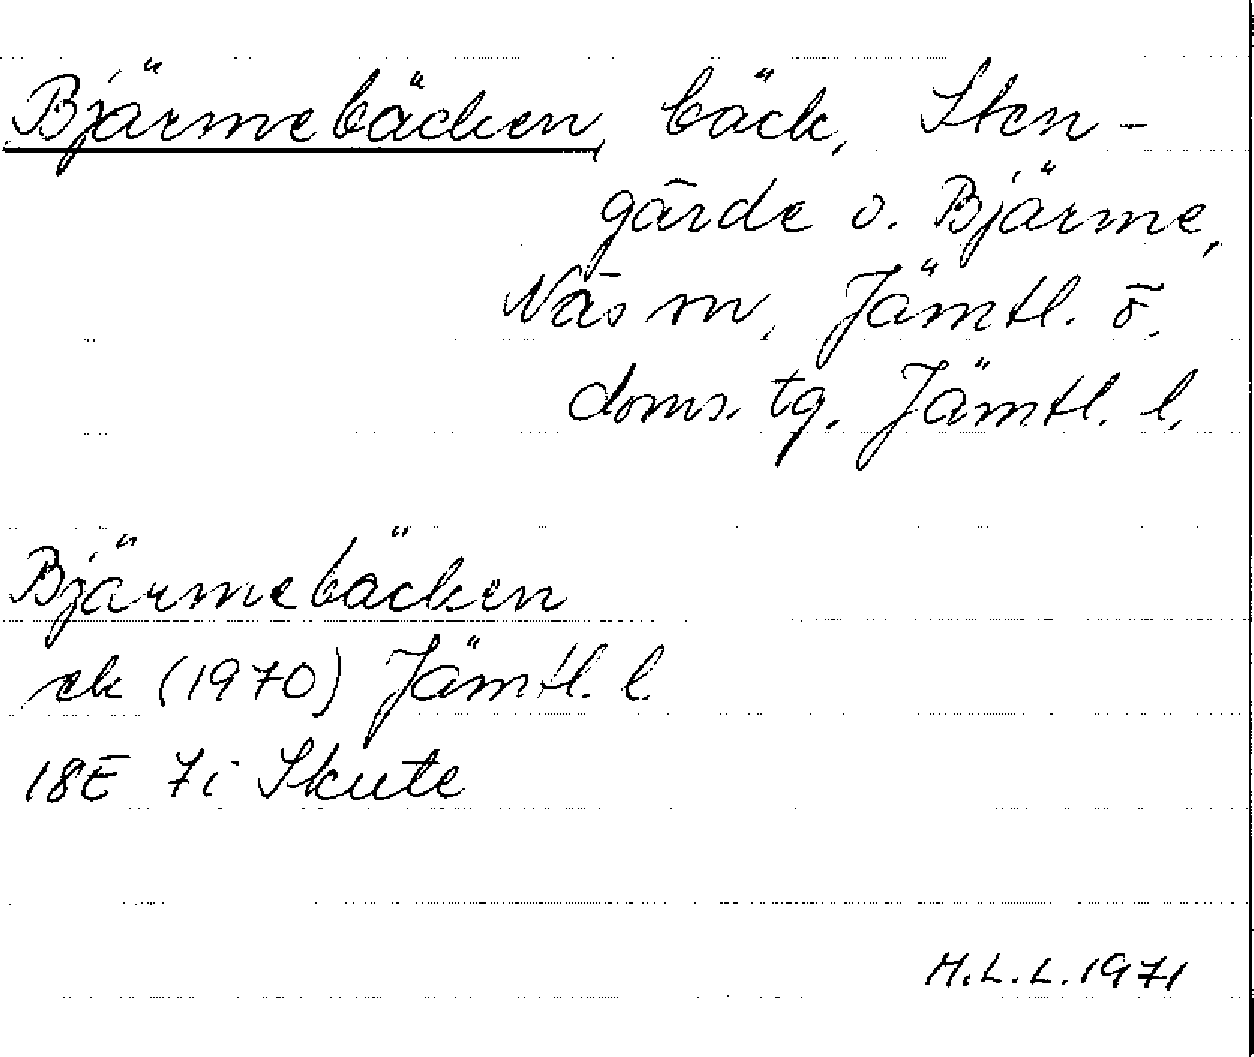 Bjärmebäcken, bäck, Sten-
gärde o. Bjärme,
Näs sn, Jämtl. ö.
doms. tg. Jämtl. l.
Bjärmebäcken
ek (1970) Jämtl. l
18E 7i Skute
M.L.L. 1971